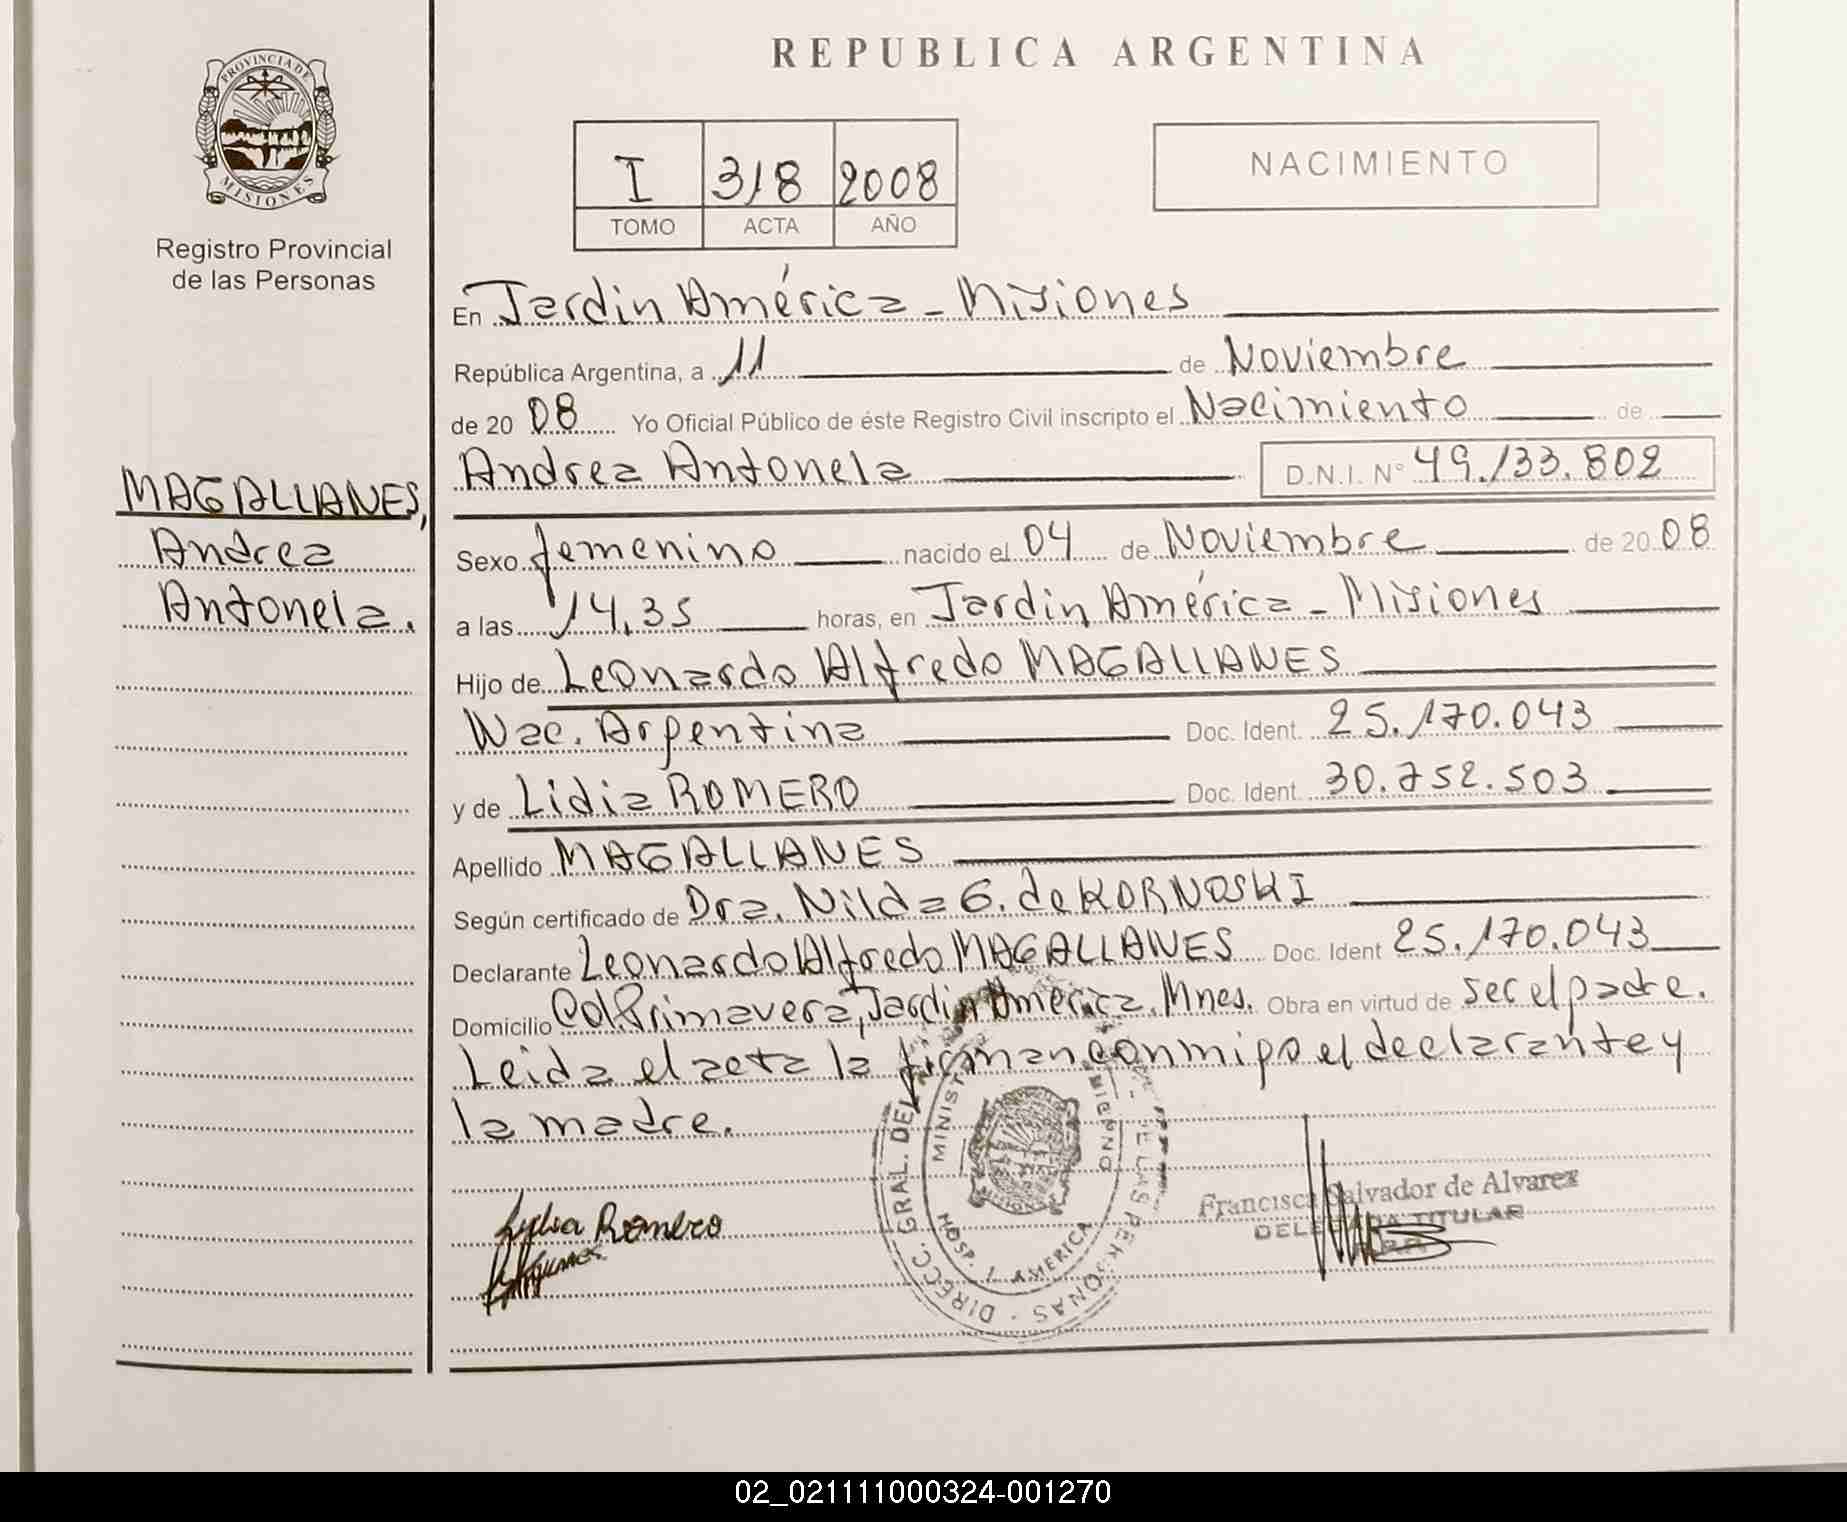 REPUBLICA ARGENTINA
PROVINCIA DE
MISIONES
Registro Provincial
de las Personas
I 318 2008
TOMO ACTA AÑO
NACIMIENTO
En Jardin América - Misiones
República Argentina, a 11 de Noviembre
de 20 08 Yo Oficial Público de éste Registro Civil inscripto el Nacimiento de
Andrea Antonela D.N.I. N° 49.133.802
MAGALLANES,
Andrea
Antonela.
Sexo femenino nacido el 04 de Noviembre de 20 08
a las 14,35 horas, en Jardin América - Misiones
Hijo de Leonardo Alfredo MAGALLANES
Nac. Argentina Doc. Ident. 25.170.043
y de Lidia ROMERO Doc. Ident. 30.752.503
Apellido MAGALLANES
Según certificado de Dra. Nilda G. de KORNOSKI
Declarante Leonardo Alfredo MAGALLANES Doc. Ident 25.170.043
Domicilio Col. Primavera, Jardin América, Mnes. Obra en virtud de ser el padre.
Leida el acta la firman conmigo el declarante y
la madre.
Lydia Romero
DIRECC. GRAL. DEL LAS PERSONAS
HOSP. J. AMERICA
Francisca Salvador de Alvarez
DELEGADA TITULAR
02_021111000324-001270